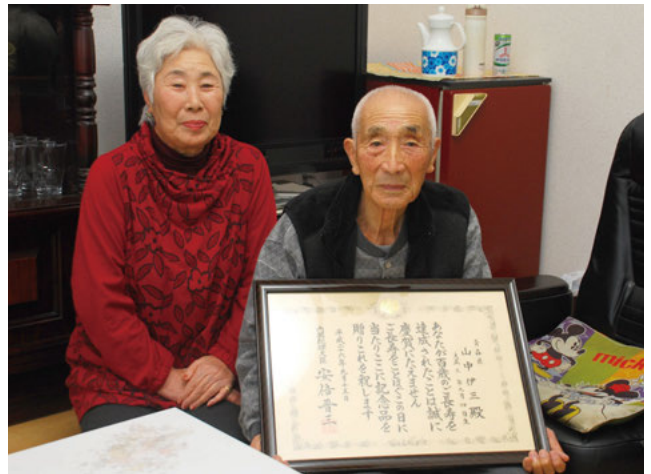 山中伊三殿
あなたが百歳のご長寿を
達成されたことは誠に
慶賀にたえません
ご長寿をことほぐこの日に
当たりここに記念品を
贈りこれを祝します
内閣総理大臣 安倍晋三
mick